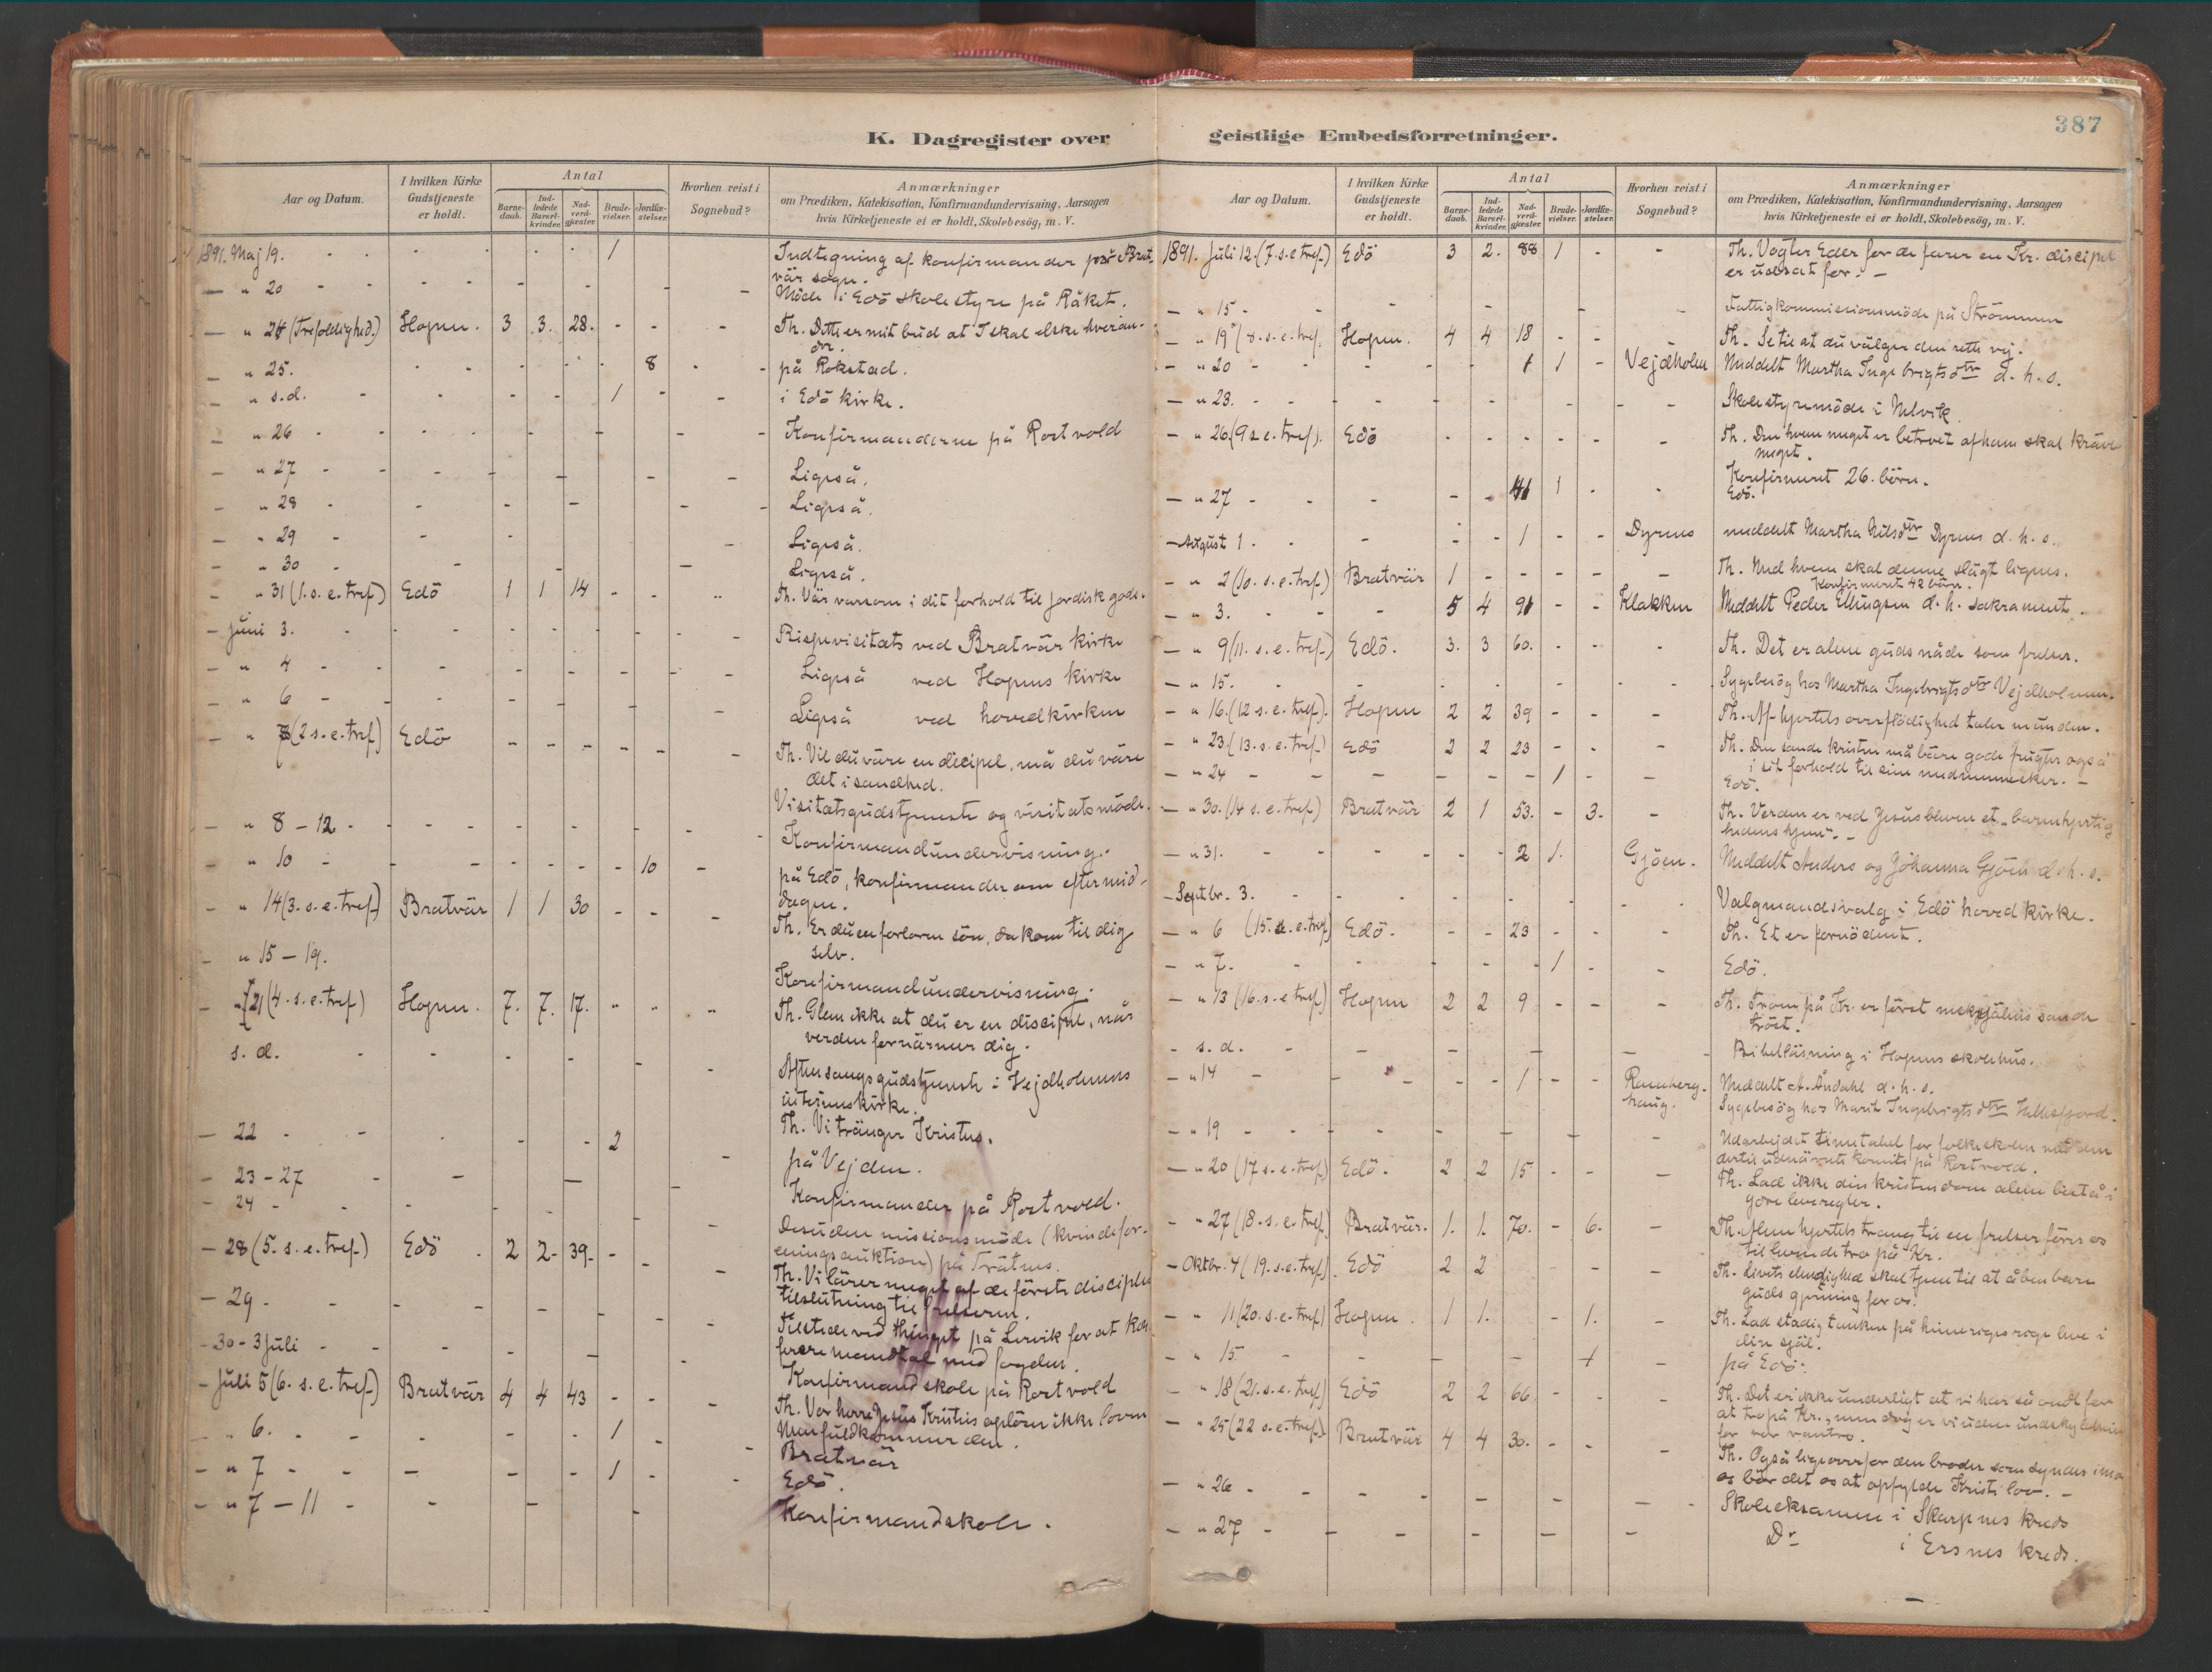 387
K. Dagregister over geistlige Embedsforretninger.
Aar og Datum.
I hvilken Kirke Gudstjeneste er holdt.
Antal
Barne-daab.
Ind-ledede Barsel-kvinder.
Nad-verd-gjester.
Brude-vielser.
Jordfæ-stelser.
Hvorhen reist i Sognebud?
Anmærkninger
om Prædiken, Katekisation, Konfirmandundervisning, Aarsagen
hvis Kirketjeneste ei er holdt, Skolebesøg, m. V.
1891. Maj 19. - - - - - - 1 Indtegning af konfirmander på Brat-
vär sogn.
— " 20 - - - - - - - Möde i Edö skolestyre på Råket.
— " 24 (Trefoldighed.) Hopen. 3 3. 28. - - - Th. Dette er mit bud at I skal elske hveran-
dre.
— " 25. - - - - - 8 - - på Rokstad.
— " s.d. - - - - 1 - - i Edö kirke.
— " 26 - - - - - - - Konfirmanderne på Rostvold
— " 27 - - - - - - - Ligeså.
— " 28 - - - - - - Ligeså.
— " 29 - - - - Ligeså.
— " 30 - - - Ligeså.
— " 31 (1. s. e. tref.) Edö 1 1 14 - - " Th. Vär varsom i dit forhold til jordisk gods.
— Juni 3. - - - - - - - Bispevisitats ved Bratvär kirke
— " 4 - - - - - - - Ligeså ved Hopens kirke
— " 6 - - - - - - - Ligeså ved hovedkirken
— " 7 (2 s. e. tref) Edö - - - - - - Th. Vil du väre en discipel, må du väre
det i sandhed.
Visitatsgudstjeneste og visitatsmöde.
— " 8 – 12 - - - - - - - Konfirmandundervisning.
— " 10 - - - - - - 10 - på Edö, konfirmander om eftermid-
dagen.
— " 14 (3. s. e. tref) Bratvär 1 1 30 - - - Th. Er du en forloren sön, da kom til dig
selv.
— " 15 – 19. Konfirmandundervisning.
— " 21 (4. s. e. tref) Hopen. 7. 7. 17. " " " Th. Glem ikke at du er en discipel, når
verden fornärmer dig.
s. d. - - - - - - Aftensangsgudstjeneste i Vejdholmens
interimskirke.
Th. Vi tränger Kristus.
— 22 - - - - - 2 - på Vejden.
— 23 – 27 - - - - Konfirmander på Rostvold.
— 24 - - - - - - - Desuden missionsmöde (kvindefor-
eningsauktion) på
— 28 (5. s. e. tref.) Edö . 2 2- 39- - - - Th. Vi lärer meget af de förste disciples
tilslutning til frelseren.
— 29 - - - - - - - Tilstede ved thinget på Lervik for at kon-
ferere mandtal med fogden.
— 30 – 3 Juli - - - - - Konfirmandskole på Rostvold
— Juli 5 (6. s. e. tref) Bratvär 4 4 43 - - - Th. Vor herre Jesus Kristus oplöser ikke loven
Men fuldkommer den.
— " 6. - - - - - 1 - - Bratvär
— " 7 - - - - - 1 - - Edö.
— " 7 – 11 - - - - Konfirmandskole.
Aar og Datum.
I hvilken Kirke Gudstjeneste er holdt.
Antal
Barne-daab.
Ind-ledede Barsel-kvinder.
Nad-verd-gjester.
Brude-vielser.
Jordfæ-stelser.
Hvorhen reist i Sognebud?
Anmærkninger
om Prædiken, Katekisation, Konfirmandundervisning, Aarsagen
hvis Kirketjeneste ei er holdt, Skolebesøg, m. V.
1891. Juli 12. (7. s. e tref.) Edö 3 2. 88 1 - - Th. Vogter Eder for de farer en Kr. discipel
er udsat for. —
— " 15 - - - - - - Fattigkommissionsmöde på Strömmen
— " 19 (8. s. e. tref. Hopen. 4 4 18 - - - Th. Se til at du välger den rette vej.
— " 20 - - - - - 1 1 - Vejdholm Meddelt Martha Ingebrigtsdtr d. h. s.
— " 23. - - - - - - - - - Skolestyremöde i Nelvik.
— " 26 (9 s. e. tref). Edö - - - - - - Th. Den hvem meget er betroet af ham skal kräves
meget.
Konfirmeret 26. börn.
— " 27 - - - - - 41 1 - - Edö.
— August 1. - - - - 1 - - Dyrnes meddelt Martha Nilsdtr Dyrnes d. h. s.
— " 2 (10. s. e. tref) Bratvär 1 - - - - - Th. Med hvem skal denne slägt lignes.
Konfirmeret 42 börn.
— " 3. - - - 5 4 91 - - Klakken Meddelt Peder Ellingsen d. h. sakrament.
— " 9 (11. s. e. tref.) Edö. 3. 3 60. - - - Th. Det er alene guds nåde som frelser.
— " 15. - - - - - - - - Sygebesög hos Martha Ingebrigtsdtr Vejdholmen.
— " 16. (12 s. e. tref). Hopen 2 2 39 - - - Th. Af hjertets overflödighed taler munden.
— " 23. (13. s. e. tref.) Edö 2 2 23 - - - Th. Den sande kristen må bäre gode frugter også
i sit forhold til sine medmennesker. —
— " 24 - - - - - - 1 - - Edö.
— " 30. (14 s. e. tref) Bratvär 2 1 53. - 3. - Th. Verden er ved Jesus bleven et „barmhjertig
hedens hjem“. —
— " 31. - - - - - 2 1. Gjöen. Meddelt Anders og Johanna Gjöen d. h. s.
— Septbr. 3. - - - - - - - - Valgmandsvalg i Edö hovedkirke.
— " 6 (15. s. e. tref) Edö. - - 23 - - - Th. Et er fornödent.
— " 7. - - - - - 1 - - Edö.
— " 13 (16. s. e tref) Hopen 2 2 9 - - - Th. Troen på Kr. er först menneskesjälens sande
tröst.
— s. d. - - - - - - Bibelläsning i Hopens skolehus.
— " 14 - - - - 1 - - Ramberg-haug. Meddelt A. Åndahl d. h. s.
Sygebesög hos Marit Ingebrigtsdtr
— " 19 - - - - - - - Udarbejdet timetabel for folkeskolen med den
dertil udnävnte komite på Rostvold.
— " 20 (17 s. e. tref) Edö. 2 2 15 - - - Th. Lad ikke din kristendom alene bestå i
gode leveregler.
— " 27 (18. s. e. tref) Bratvär. 1. 1. 70. - 6. - Th. Alene hjertets trang til en frelser förer os
til levende tro på Kr.
— Oktbr. 4 (19. s. e. tref). Edö 2 2 - - - Th. Livets elendighed skal tjene til at åbenbare
guds gjerning for os.
— " 11 (20. s. e. tref) Hopen . 1 1. - 1. - Th. Lad stadig tanken på himmeriges rige leve i
din själ.
— " 15 - - - - 1 - på Edö.
" 18 (21. s. e. tref) Edö 2 2 66 - - - Th. Det er ikke underligt at vi har så ondt for
at tro på Kr., men dog er vi uden undskyldning
for vor vantro.
— " 25 (22 s. e. tref.) Bratvär 4 4 30. - - - Th. Også ligeoverfor den broder som synder imod
os bör det os at opfylde Kristi lov. —
— " 26 - - - - - - - - Skoleeksamen i Skarpnes kreds
— " 27 - - - - - - Do i Ersnes kreds.